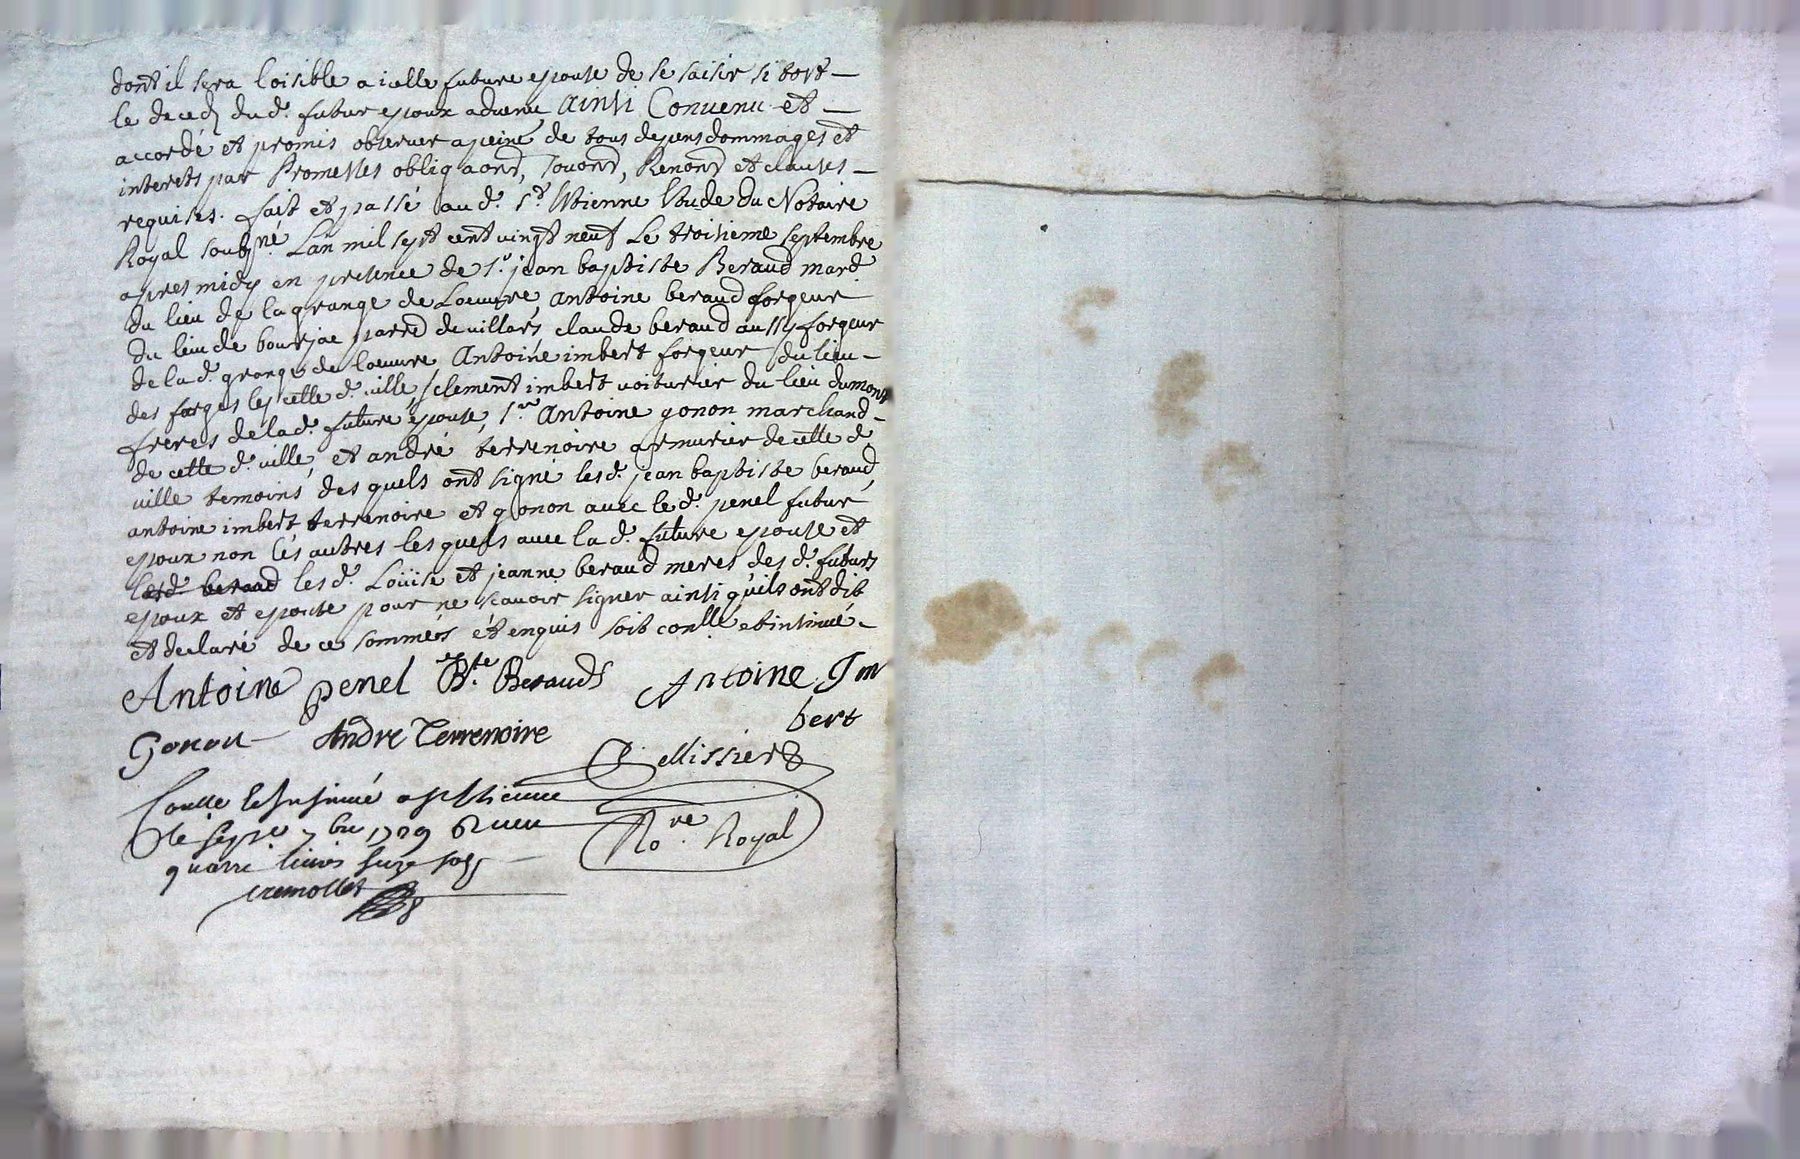 dont il sera loisible a icelle future epouse de se saisir si tost
le deced du d. futur epoux advenu ainsi Convenu et
accordé et promis observer a peine de tous depens dommages et
interets par Promesses obliga͠ons, soũons, Renoñs et clauses
requises. fait et passé au d. St. Etienne Etude du Notaire
Royal soub.né Lan mil sept cent vingt neuf Le troisieme septembre
apres midy en presence de Sr. jean baptiste Beraud mard
du lieu de la grange de Loeuvre, antoine beraud forgeur
du lieu de bourjac parr de villars claude beraud aussy forgeur
de la d. grange de loeuvre Antoine imbert forgeur du lieu
des forges les cette d. ville, clement imbert voiturier du lieu du mont
freres de la d. future epouse, Sr. Antoine gonon marchand
de cette d. ville, et andré terrenoire armurier de cette d.
ville temoins des quels ont signé les d. jean baptiste beraud,
antoine imbert terrenoire et gonon avec le d. penel futur
epoux non les autres les quels avec la d. future epouse et
les d. beraud les d. Loüise et jeanne beraud meres des d. futurs
epoux et epouse pour ne scavoir signer ainsi quils ont dit
et declaré de ce sommés et enquis soit conllé et insinué
Antoine penel Bte. Beraud Antoine Im
bert
Gonon Andre Terrenoire
Pellissier
Conllé et Insinué a St Etienne
le sept 7bre 1729 Recu
Nore. Royal
quatre livres seize sols